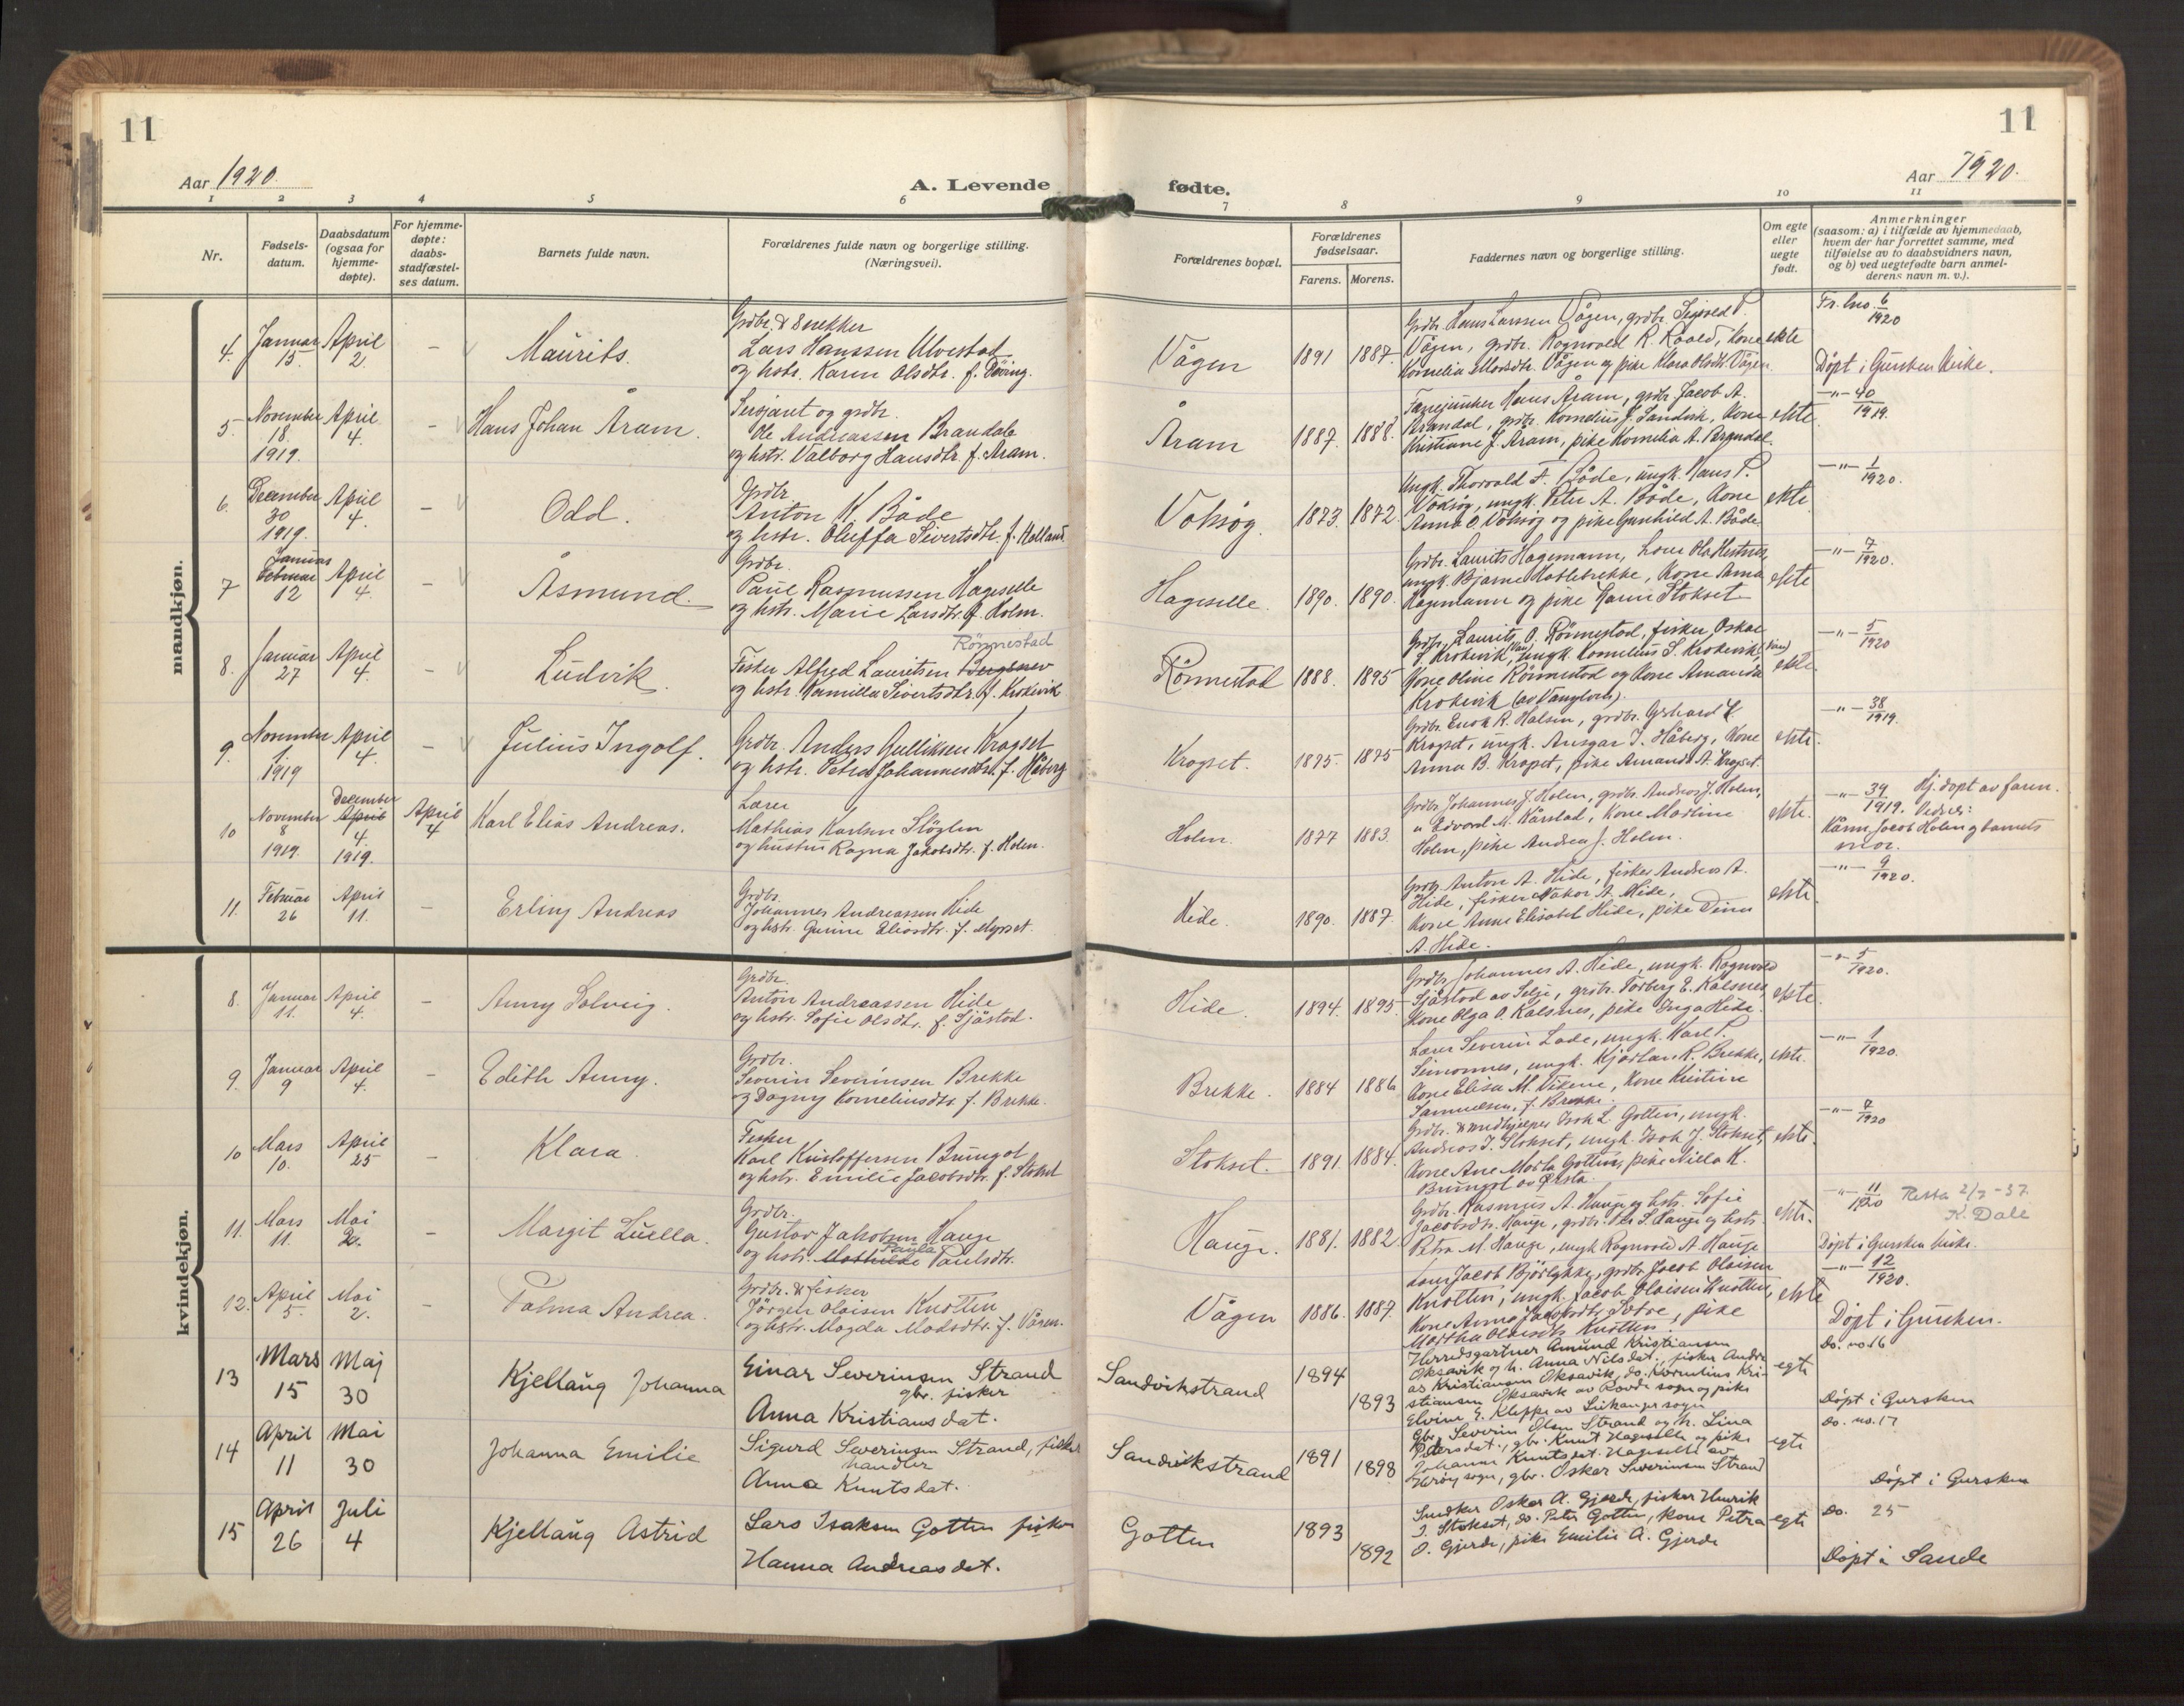 11
11
Aar 1920.
A. Levende
fødte.
Aar 1920.
1 2 3 4 5 6 7 8 9 10 11
Nr.
Fødsels-
datum.
Daabsdatum
(ogsaa for
hjemme-
døpte).
For hjemme-
døpte:
daabs-
stadfæstel-
ses datum.
Barnets fulde navn.
Forældrenes fulde navn og borgerlige stilling.
(Næringsvei).
Forældrenes bopæl.
Forældrenes
fødselsaar.
Farens. Morens.
Faddernes navn og borgerlige stilling.
Om egte
eller
uegte
født.
Anmerkninger
(saasom: a) i tilfælde av hjemmedaab,
hvem der har forrettet samme, med
tilføielse av to daabsvidners navn,
og b) ved uegtefødte barn anmel-
derens navn m. v.).
mandkjøn.
4. Januar 15. April 2. – Maurits.
Grdbr. & Snekker
Lars Hanssen Ulvestad
og hstr. Karen Olsdtr. f. Døving.
Vågen 1891 1887.
Grdbr. Hans Larssen Vågen, grdbr. Sigvald P.
Vågen, grdbr. Ragnvald R. Råold, kone
Kornelia Madsdtr. Vågen og pike Klara Olsdtr. Vågen
ekte
Fr. lno. 6/1920
Döpt i Gursken kirke.
5. November 18. 1919. April 4. – Hans Johan Åram.
Sersjant og grdbr.
Ole Andreassen Brandal
og hstr. Valborg Hansdtr. f. Åram.
Åram 1887. 1888.
Fanejunker Hans Åram, grdbr. Jacob A.
Brandal, grdbr. Kornelius J. Sandvik, kone
Kristiane J. Åram, pike Kornelia A. Brandal.
ekte.
–"– 40/1919.
6. December 30 1919. April 4. – Odd.
Grdbr.
Anton K. Både
og hstr. Oluffa Sivertsdtr. f. Holland.
Voksøg. 1873. 1872.
Ungk. Thorvald A. Både, ungk. Hans P.
Voksøg, ungk. Peter A. Både, kone
Anna O. Voksøg og pike Gunhild A. Både.
ekte.
–"– 1/1920.
7 Januar Februar 12 April 4. – Åsmund.
Grdbr.
Paul Rasmussen Hageselle
og hstr. Marie Larsdtr. f. Holm.
Hageselle. 1890. 1890.
Grdbr. Laurits Hagemann, Lars Ola Hestnes,
ungk. Bjarne Hatlebrekke, kone Anna
Hagemann og pike Karen Stokset
ekte
–"– 7/1920.
8. Januar 27 April 4. – Ludvik.
Rönnestad
Fisker Alfred Lauritsen
og hstr. Kamilla Sivertsdtr. f. Krokvik
Rönnestad 1888. 1895
Grdbr. Laurits O. Rönnestad, fisker Oskar
S. Krokvik, ungk. Kornelius S. Krokvik
kone Oline Rönnestad og kone Amanda
Krokvik (av Vanylven).
ekte.
–"– 5/1920
9. November 1. 1919 April 4. – Julius Ingolf.
Grdbr. Anders Gulliksen Krogset
og hstr. Petra Johannesdtr. f. Håberg
Krogset. 1875 1875
Grdbr. Enok R. Halsen, grdbr. Gerhard L.
Krogset, ungk. Ansgar J. Håberg, kone
Anna B. Krogset, pike Amanda A. Krogset.
ekte.
–"– 38/1919.
10 November 8 1919. December April 4. 1919. April 4 Karl Elias Andreas.
Lærer
Mathias Karlsen Slöglen
og hustru Ragna Jakobsdtr. f. Holm.
Holm. 1877 1883.
Grdbr. Johannes J. Holm, grdbr. Andreas J. Holm,
" Edvard M. Kårstad, kone Madline
Holm, pike Andrea J. Holm.
ekte.
–"– 39/1919. Hj. döpt av faren.
Vidner:
Kårm. Jacob Holm og barnets
mor.
11. Februar 26 April 11. – Erling Andreas
Grdbr.
Johannes Andreassen Hide
og hstr. Gunne Eliasdtr. f. Myrset.
Hide. 1890. 1887.
Grdbr. Anton A. Hide, fisker Andreas A.
Hide, fisker Håkon A. Hide,
kone Anne Elisabet Hide, pike Dina
A. Hide.
ekte.
–"– 9/1920.
kvindekjøn.
8. Januar 11. April 4. – Anny Solveig.
Grdbr.
Anton Andreassen Hide
og hstr. Sofie Olsdtr. f. Sjåstad.
Hide. 1894. 1895
Grdbr. Johannes A. Hide, ungk. Ragnvald
Sjåstad av Selje, grdbr. Torberg E. Kalsnes,
kone Olga O. Kalsnes, pike Inga Hide.
ekte.
–"– 5/1920.
9. Januar 9 April 4. – Edith Anny.
Grdbr.
Severin Severinsen Brekke
og Dagny Korneliusdtr. f. Brekke.
Brekke. 1884 1886
Lærer Severin Lade, ungk. Karl P.
Simonnes, ungk. Kjartan R. Brekke,
kone Elisa M. Vikene, kone Kristine
Samuelsen, f. Brekke.
ekte.
–"– 1/1920.
10 Mars 10. April 25 – Klara.
Fisker
Karl Kristoffersen Brungot
og hstr. Emilie Jacobsdtr. f. Stokset
Stokset. 1891. 1884.
Grdbr. & medhjelper Isak L. Gotten, ungk.
Andreas I. Stokset, ungk. Isak J. Stokset,
kone Ane Marta Gotten, pike Nilla K.
Brungot av Ørsta.
ekte.
–"– 7/1920
11. Mars 11. Mai 2. – Margit Luella.
Grdbr.
Gustav Jakobsen Hauge
og hstr. Mathilde Paula Paulsdtr.
Hauge. 1881. 1882.
Grdbr. Rasmus A. Hauge og hstr. Sofie
Jacobsdtr. Hauge, grdbr. Per S. Hauge og hstr.
Petra M. Hauge, ungk. Ragnvald A. Hauge
ekte.
–"– 11/1920 37.
K. Dale
Döpt i Gursken kirke.
12. April 5. Mai 2. – Palma Andrea.
Grdbr. & fisker
Jörgen Olaisen Knotten
og hstr. Magda Madsdtr. f. Vågen.
Vågen 1886. 1887.
Lærer Jacob Bjørlykke, grdbr. Jacob Olaisen
Knotten, ungk. Jacob Olaisen Knotten,
kone Anna Jacobsdtr. Sætre, pike
Martha Olaisdtr. Knotten.
ekte
–"– 12/1920.
Döpt i Gursken.
13 Mars 15 Maj 30 Kjellaug Johanna
Einar Severinsen Strand
gbr. fisker
Anna Kristiansdat.
Sandvikstrand 1894 1893
Herredsgartner Amund Kristiansen
Oksavik og h. Anna Nilsdat., fisker Andre-
as Kristiansen Oksavik, do. Kornelius Kri-
stiansen Oksavik av Rovde sogn og pike
Elvine E. Kleppe av Leikanger sogn
egte
Do. no. 16
Døpt i Gursken
14 April 11 Mai 30 Johanna Emilie
Sigurd Severinsen Strand, fisk
handler
Anna Knutsdat.
Sandvikstrand 1891 1898
Gbr. Severin Olsen Strand og h. Lina
Pedersdat., gbr. Knut Hageselle og pike
Johanne Knutsdat. Hageselle av
Herøy sogn, gbr. Oskar Severinsen Strand
egte
Do. no. 17
Døpt i Gursken
15 April 26 Juli 4 Kjellaug Astrid
Lars Isaksen Gotten fisker
Hanna Andreasdat.
Gotten 1893 1892
Snedker Oskar A. Gjerde, fisker Henrik
I. Stokset, do. Peter Gotten, kone Petra
O. Gjerde, pike Emilie A. Gjerde
egte
Do. 25
Døpt i Sande